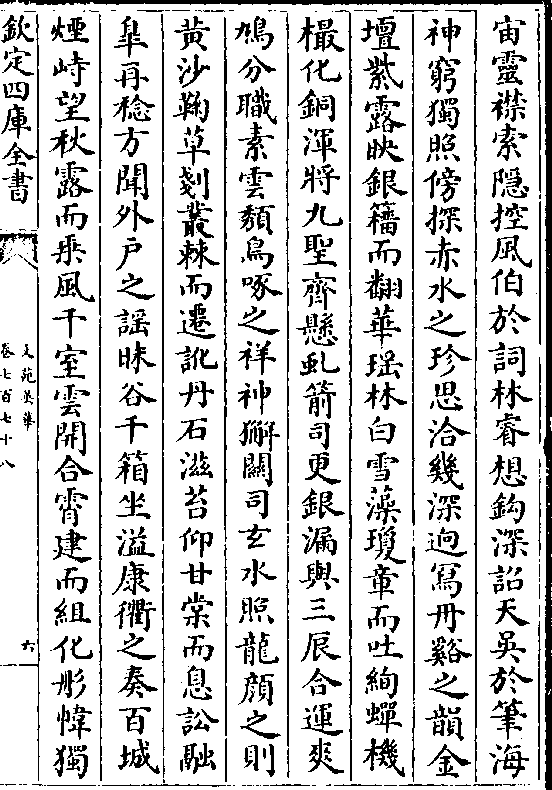 宙靈襟索隐控風伯於詞林睿想鈎深詔天吳於筆海
神窮獨照傍探赤水之珍思洽幾深迥冩丹谿之韻金
壇紫露映銀籀而翻華瑶林白雪藻瓊章而吐絢蟬機
樶化銅渾將九聖齊懸虬箭司更銀漏與三辰合運爽
鳩分職素雲頽鳥啄之祥神獬闢司玄水照龍顔之則
黄沙鞠草剗叢棘而遷訛丹石滋苔仰甘棠而息訟融
臯再稔方聞外戸之謡昧谷千箱坐溢康衢之奏百城
煙峙望秋露而乗風千室雲開合霄建而組化彤幃獨
欽定四庫全書
文苑英華
卷七百七十八
六